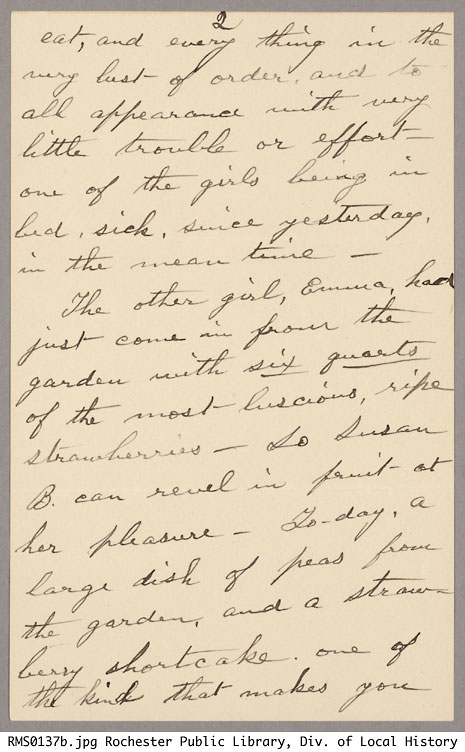 2
eat, and every thing in the
very best of order, and to
all appearance with very
little trouble or effort—
one of the girls being in
bed, sick, since yesterday,
in the mean time —
The other girl, Emma, had
just come in from the
garden with six quarts
of the most luscious, ripe
strawberries — So Susan
B. can revel in fruit at
her pleasure — To-day, a
large dish of peas from
the garden, and a straw=
berry shortcake. one of
the kind that makes you
RMS0137b.jpg Rochester Public Library, Div. of Local History